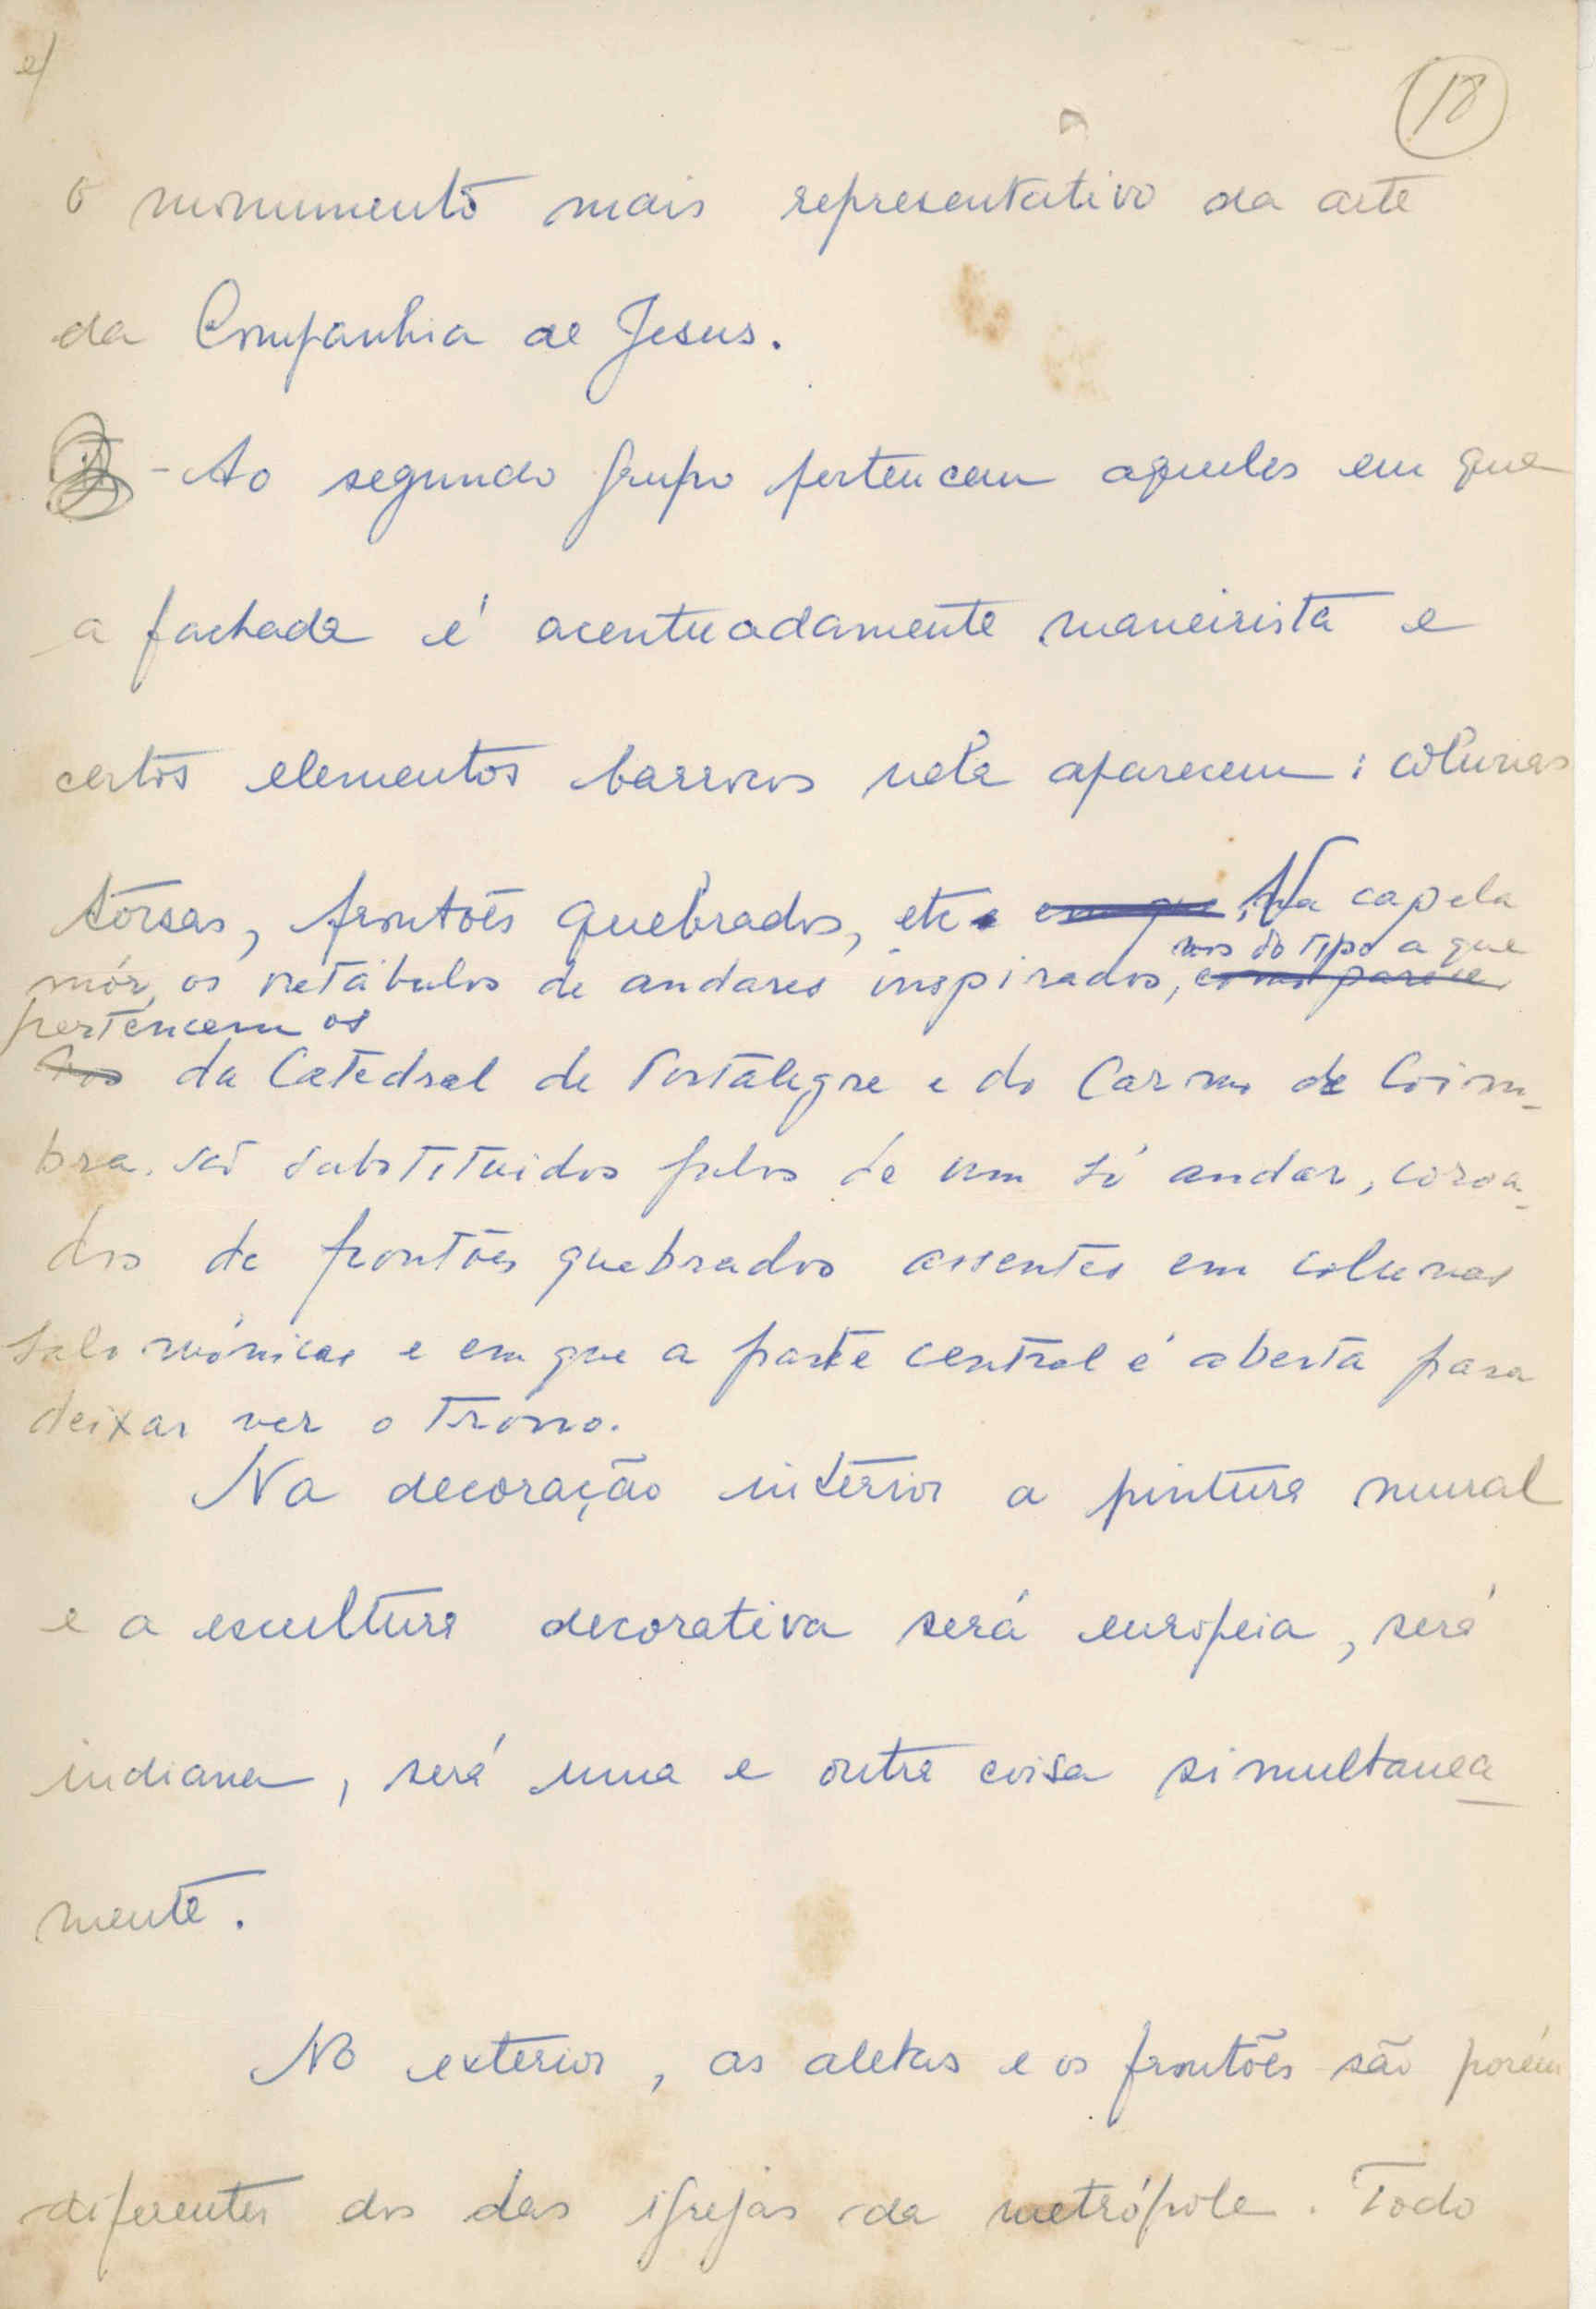 18
o monumento mais representativo da arte
da Companhia de Jesus.
- Ao segundo grupo pertencem aqueles em que
a fachada é acentuadamente maneirista e
certos elementos barrocos nela aparecem: colunas
torsas, frontões quebrados, etc. em que Na capela
nos do tipo a que
mór, os retábulos de andares inspirados, como parece
pertencem os
nos da Catedral de Portalegre e do Carmo de Coim-
bra. são substituidos pelos de um só andar, coroa-
dos de frontões quebrados assentes em colunas
salomónicas e em que a parte central é aberta para
deixar ver o trono.
Na decoração interior a pintura mural
e a escultura decorativa será europeia, será
indiana, será uma e outra coisa simultanea
mente.
No exterior, as aletas e os frontões são porém
diferentes dos das igrejas da metrópole. Todo